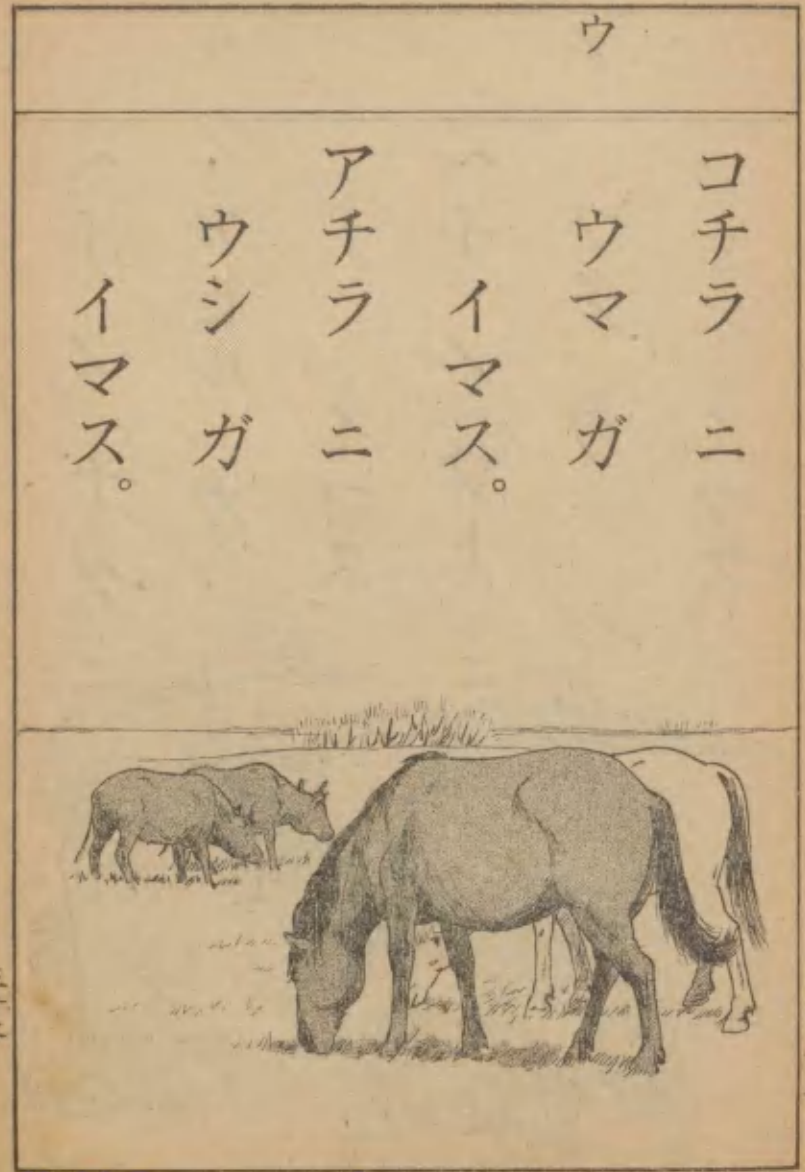 ウ
コチラ ニ
ウマ ガ
イマス。
アチラ ニ
ウシ ガ
イマス。